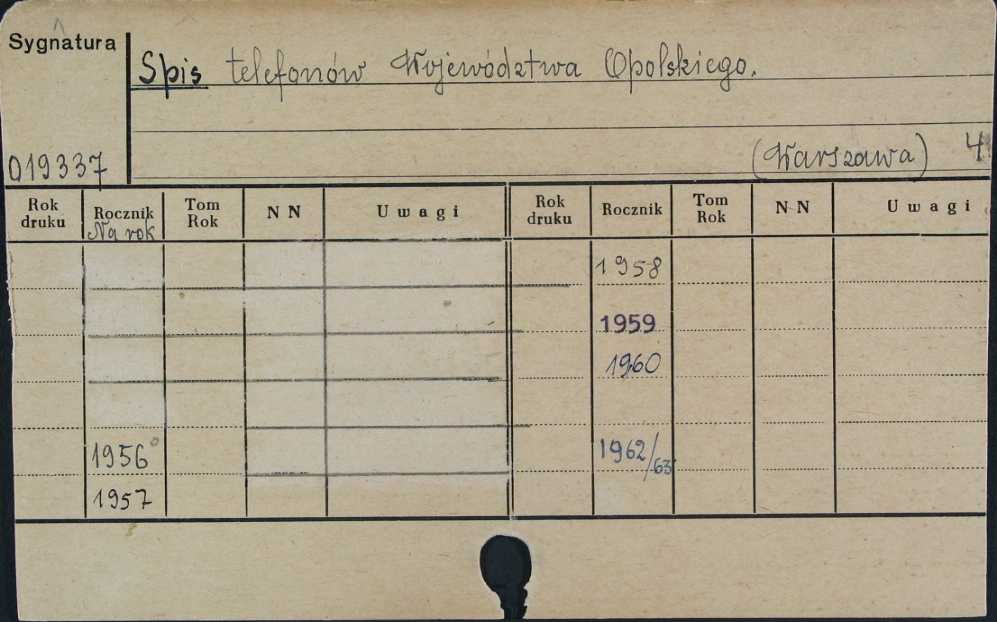 Sygnatura
Spis telefonów Województwa Opolskiego.
(Warszawa) 4
019337
Rok druku Rocznik Tom Rok NN Uwagi Rok druku Rocznik Tom Rok NN Uwagi
Na rok
1958
1959
1960
1956 1962/63
1957